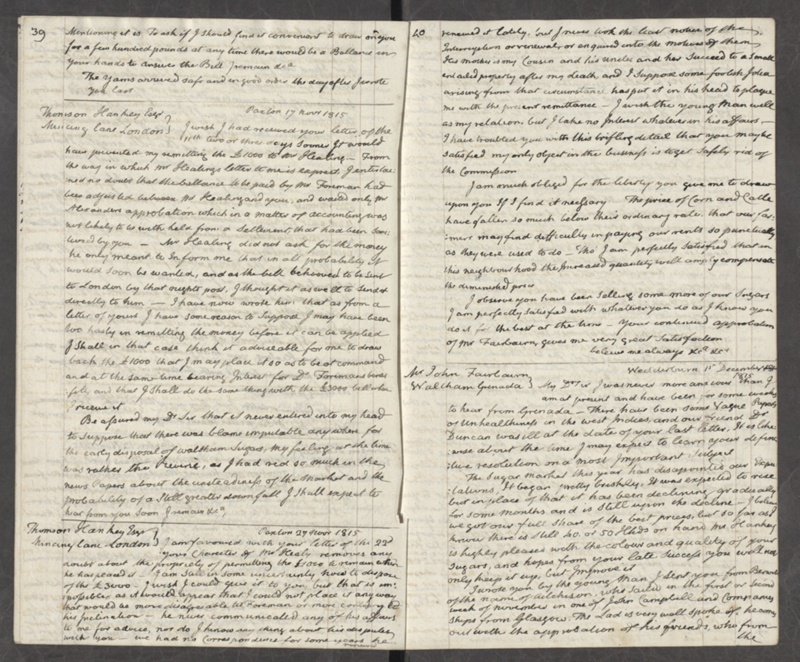 39
Mentioning it is To ask if I should find it convenient to draw on you
for a few hundred pounds at any time there would be a Ballance in
your hands to answer the Bill I remain &ca
The Yams arrived safe and in good order the day after I wrote
you last
Thomson Hankey Esqr
Mincing Lane London
Paxton 17 Novr 1815
I wish I had received your letter of the
11th two or three days sooner It would
have prevented my remitting the £1000 to Mr Healing — From
the way in which Mr Healings letter to me is exprest I entertained
no doubt that the ballance to be paid by Mr Foreman had
been adjusted between Mr Healing and you, and waited only Mr
Alexanders approbation which in a matter of accounting was
not likely to be with held from a settlement that had been
by you — Mr Healing did not ask for the money
he only meant to Inform me that in all probability it
would soon be wanted, and as the bill behooved to be sent
to London by that nights post, I thought it as well to send it
directly to him — I have now wrote him that as from a
letter of yours I have some reason to Suppose I may have been
too hasty in remitting the money before it can be applied
I shall in that case think it adviseable for me to draw
back the £1000 that I may place it so as to be at command
and at the same time bearing Interest for Dr Foremans
and that I shall do the same thing with the £3000 bill when
I receive it
Be assured my Dr Sir that it never entered into my head
to Suppose that there was blame imputable any where for
the early disposal of Waltham Sugars, my feeling at the time
was rather the reverse, as I had read so much in the
news Papers about the unsteadiness of the Market and the
probability of a Still greater downfall I shall expect to
hear from you soon I remain &ca
Thomson Hankey Esqr
Mincing Lane London
Paxton 27 Novr 1815
I am favoured with your letter of the 22d
your Character of Mr Healy removes any
doubt about the propriety of permitting the £1000 to remain where
he has placed it — I am Still in some uncertainty how to dispose
of the £3000 — I wish I could give it to you, but that is
impossible as it would appear that I could not place it any way
that would be more disagreeable to Foreman or more contrary to
his Inclination — he never communicated any of his affairs
to me for advice, nor do I know any thing about his disputes
with you — we had no Correspondence for some years he
renewed
40
renewed it lately, but I never took the least notice of the
Interruption or renewal, or enquired into the motives of them
His mother is my Cousin and his uncle and her Succeed to a Small
entailed property after my death and I Suppose some foolish Idea
arising from that circumstance has put it in his head to plague
me with the present remittance — I wish the young Man well
as my relation but I take no Interest whatever in his affairs —
I have troubled you with this trifling detail that you may be
satisfied my only object in the business is to get Safely rid of
the Commission
I am much obliged for the liberty you give me to draw
upon you If I find it necessary The price of Corn and Cattle
have fallen so much below their ordinary rate that our Farmers
may find difficulty in paying our rents so punctually
as they were used to do — Tho I am perfectly Satisfied that in
this neighbourhood the Increased quantity will amply compensate
the diminished price
I observe you have been Selling some more of our Sugars
I am perfectly Satisfied with whatever you do as I know you
do it for the best at the time — Your continued approbation
of Mr Fairbairn gives me very great Satisfaction
believe me always &ca &ca
Mr John Fairbairn
Waltham Grenada
Wedderburn 1st December 1815
My Dr Sir I was never more anxious than I
am at present and have been for some weeks
to hear from Grenada — There have been some Vague Reports
of Unhealthiness in the West Indies and our friend Dr
Duncan was ill at the date of your last letter. It is likewise
about the time I may expect to learn your definitive
resolution on a most Important Subject
The Sugar Market this year has disappointed our Expectations,
It began pretty briskly. It was expected to rise
but in place of that it has been declining gradually
for some months and is Still upon the decline — I believe
we got our full share of the best prices, but so far as I
know there is Still 40 or 50 Hhds on hand, Mr Hankey
is highly pleased with the colour and quality of your
Sugars, and hopes from your late Success you will not
only keep it up, but Improve it
I wrote you by the young Man I Sent you from Berwick
of the name of Aitchison, who sailed in the first or Second
week of November in one of John Campbell and Companys
ships from Glasgow. The Lad is very well Spoke of, he came
out with the approbation of his friends, who from
the